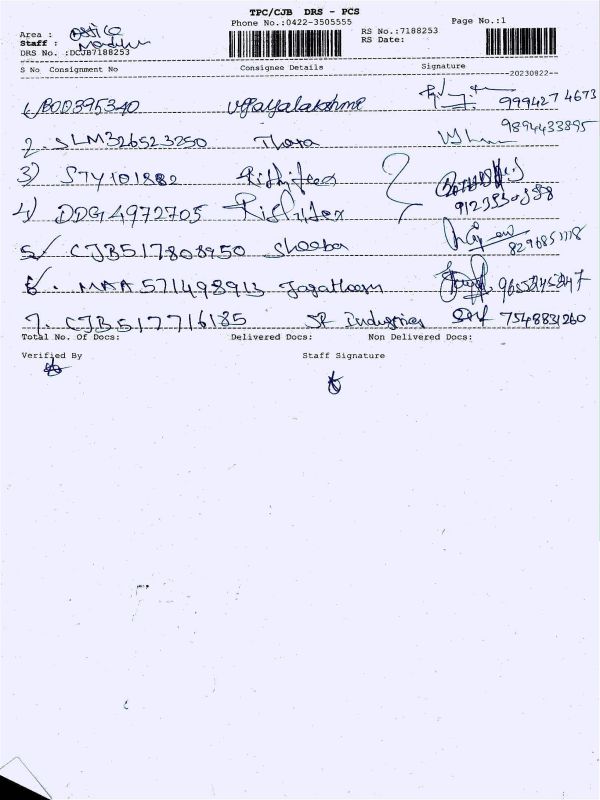 TPC/CJB DRS - PCS
Phone No.:0422-3505555
Page No.:1
Area : Office
RS No.:7188253
Staff :
RS Date:
DRS No. :DCJB7188253
S No Consignment No Consignee Details Signature
20230822
1) 800395340 Vijayalakshmi 9994274673
2. SLM326523250 Thara 9894433895
3) STY101882
4) DDG4972705
5) CJB517808950 Sheeba
6. MAA571498913 Jagatheesn
7. CJB517716185 SP Industries 7548831260
Total No. Of Docs: Delivered Docs: Non Delivered Docs:
Verified By Staff Signature